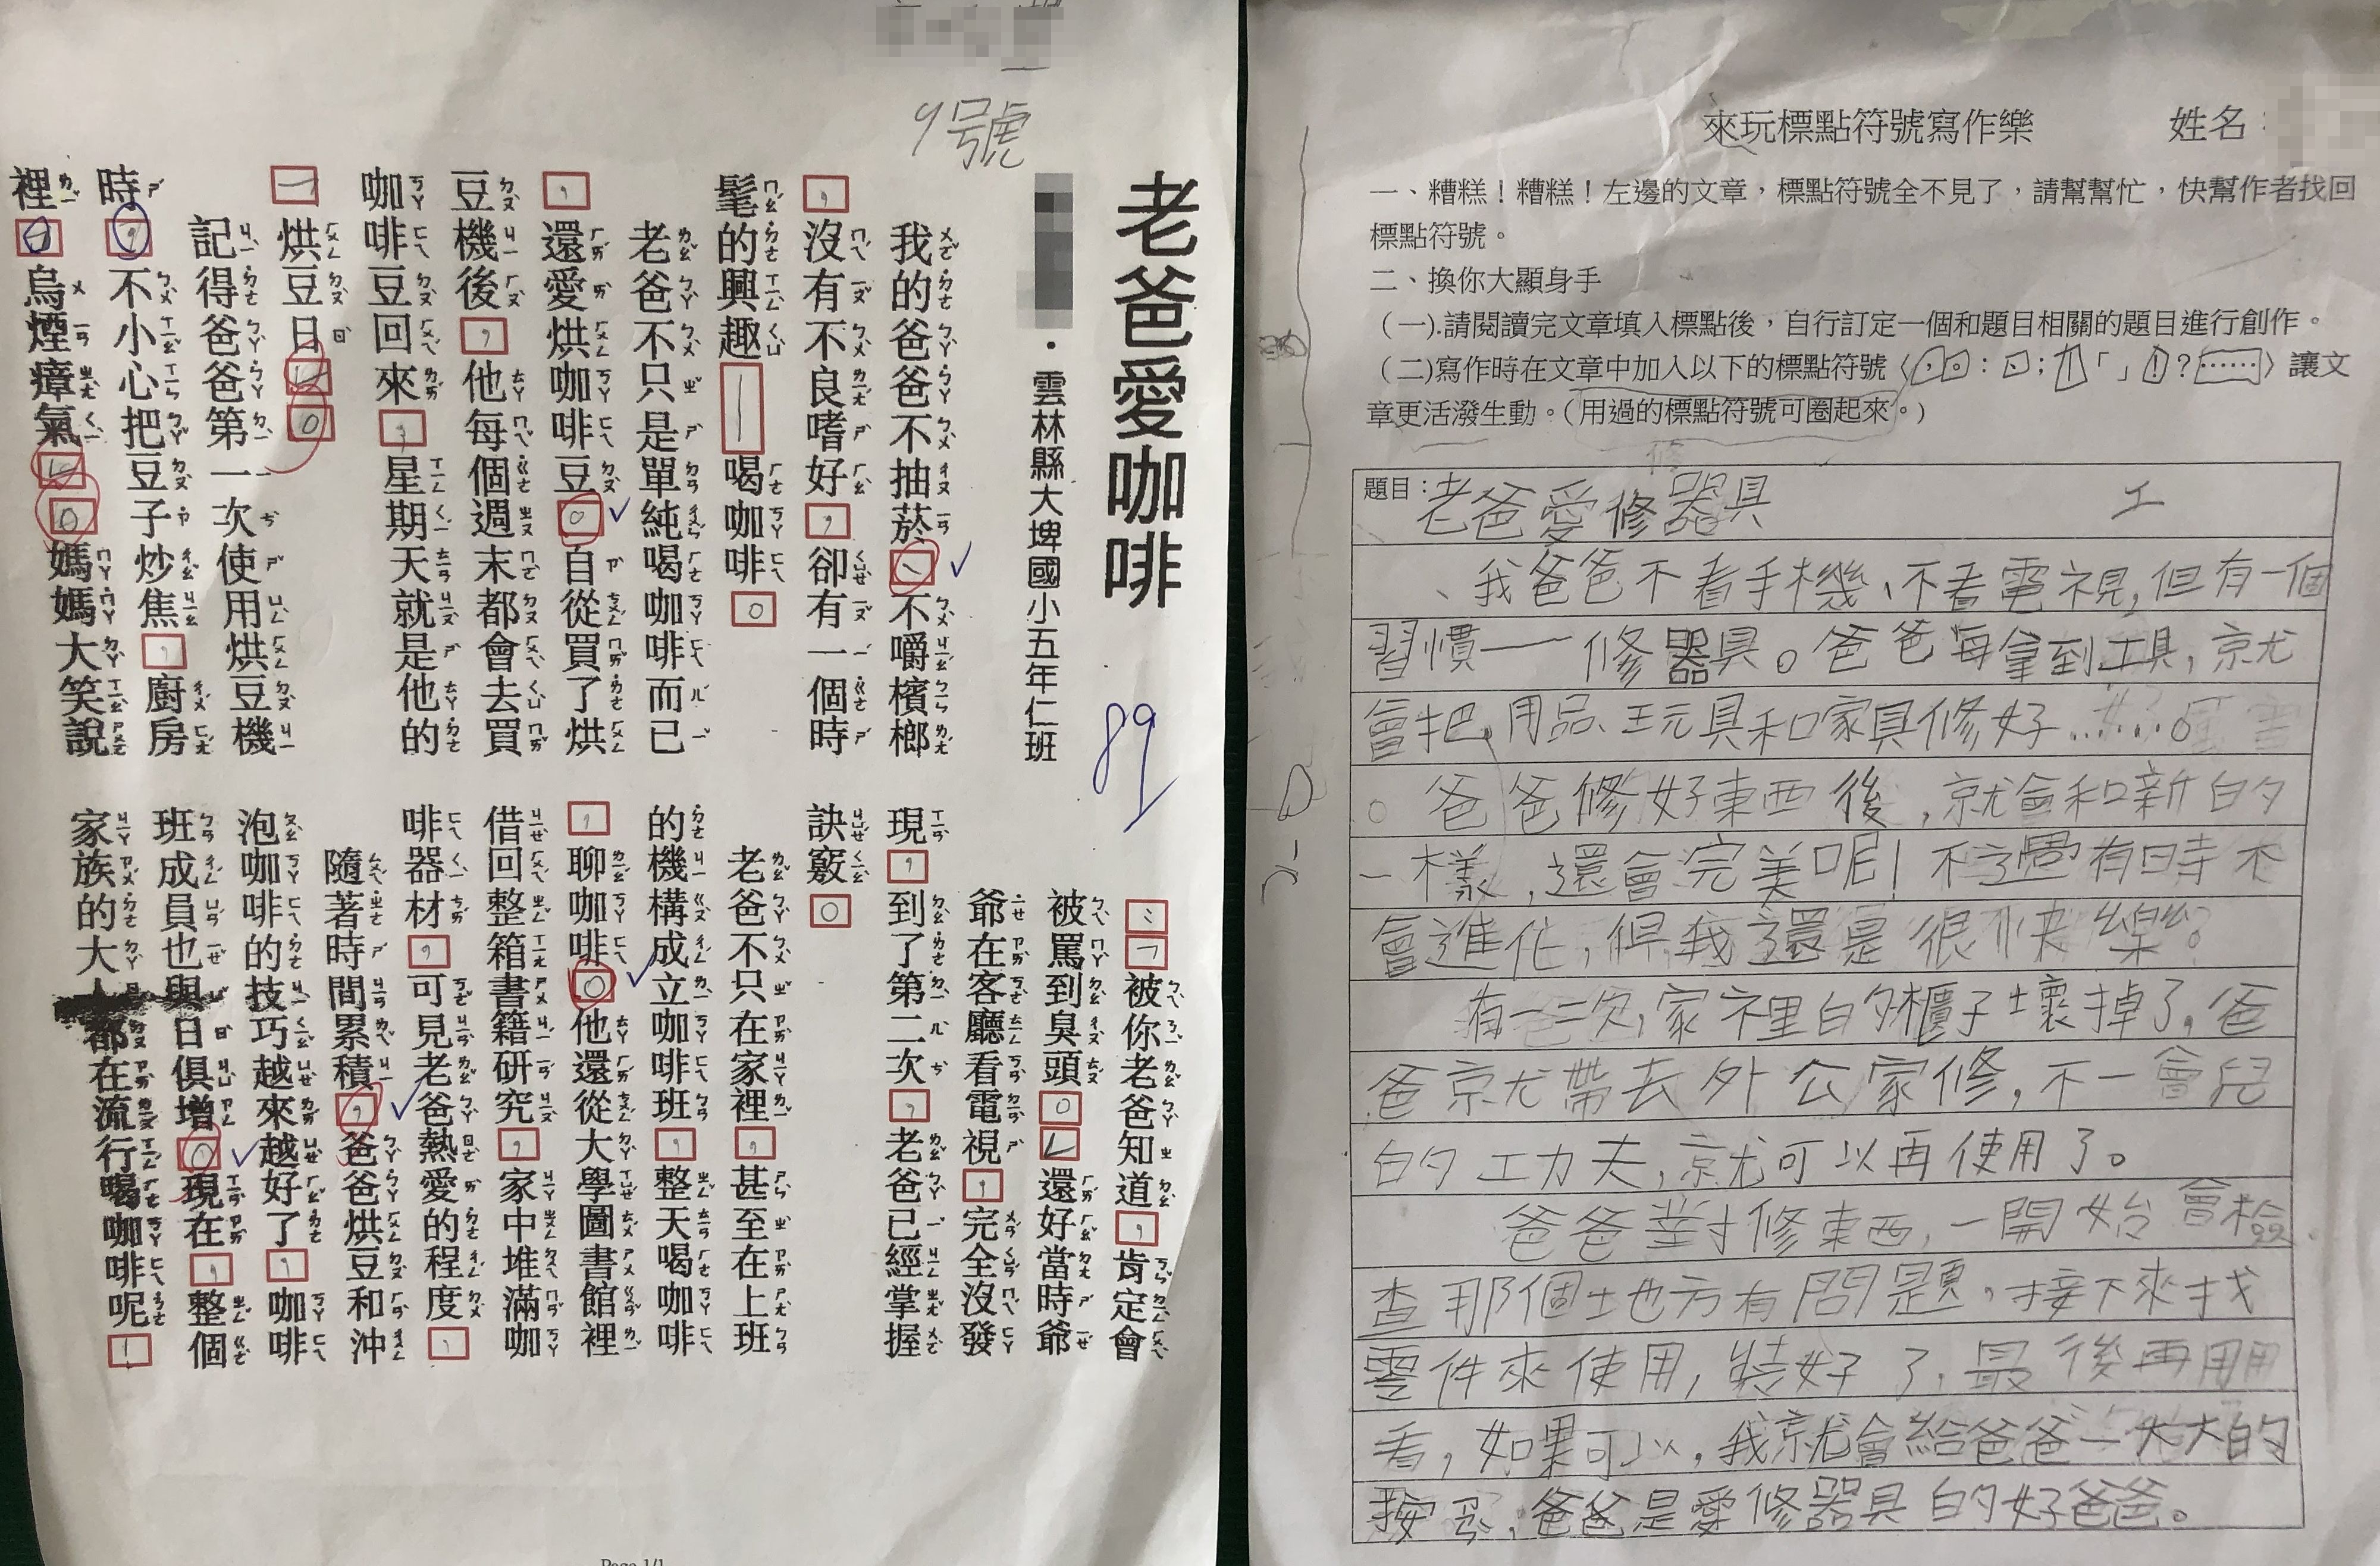 9號
老爸愛咖啡
・雲林縣大埤國小五年仁班
89
我的爸爸不抽菸、不嚼檳榔
,沒有不良嗜好,卻有一個時
髦的興趣——喝咖啡。
老爸不只是單純喝咖啡而已
,還愛烘咖啡豆。自從買了烘
豆機後,他每個週末都會去買
咖啡豆回來,星期天就是他的
「烘豆日」。
記得爸爸第一次使用烘豆機
時,不小心把豆子炒焦,廚房
裡烏煙瘴氣。媽媽大笑說
:「被你老爸知道,肯定會
被罵到臭頭。」還好當時爺
爺在客廳看電視,完全沒發
現,到了第二次,老爸已經掌握
訣竅。
老爸不只在家裡,甚至在上班
的機構成立咖啡班,整天喝咖啡
,聊咖啡。他還從大學圖書館裡
借回整箱書籍研究,家中堆滿咖
啡器材,可見老爸熱愛的程度,
隨著時間累積,爸爸烘豆和沖
泡咖啡的技巧越來越好了,咖啡
班成員也與日俱增。現在,整個
家族的大人都在流行喝咖啡呢!
Page 1/1
來玩標點符號寫作樂 姓名:
一、糟糕!糟糕!左邊的文章,標點符號全不見了,請幫幫忙,快幫作者找回
標點符號。
二、換你大顯身手
(一).請閱讀完文章填入標點後,自行訂定一個和題目相關的題目進行創作。
(二)寫作時在文章中加入以下的標點符號〈,。:、;「」!?……〉讓文
章更活潑生動。(用過的標點符號可圈起來。)
題目:老爸愛修器具
我爸爸不看手機、不看電視,但有一個
習慣——修器具。爸爸每拿到工具,就
會把,用品、玩具和家具修好……。
。爸爸修好東西後,就會和新的
一樣,還會完美呢!不過有時不
會進化,但我還是很快樂。
有一次,家裡的櫃子壞掉了,爸
爸就帶去外公家修,不一會兒
的工功夫,就可以再使用了。
爸爸對修東西,一開始會檢
查那個地方有問題,接下來找
零件來使用,裝好了,最後再用用
看,如果可以,我就會給爸爸一大大的
按,爸爸是愛修器具的好爸爸。